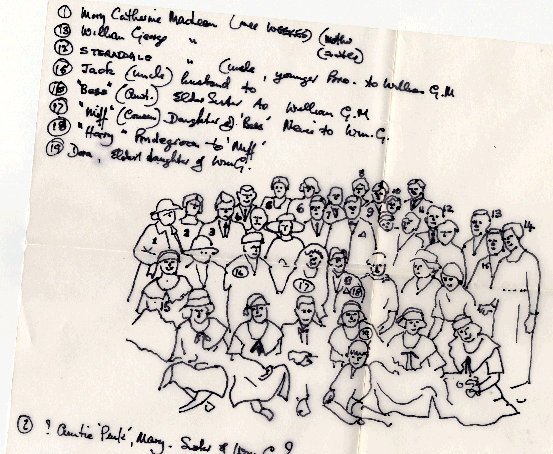 ① Mary Catherine Madeem (nee WEEKES) (mother
⑬ William George " (
⑫ STERNDALE " (uncle, younger Bro. to William G.M
⑮ Jack (uncle) husband to
⑯ "Bess" (Aunt). Elder Sister to William G.M
⑰ "Niff" (Cousin) Daughter of 'Bess' Neice to Wm. G.
⑱ "Harry" Pendegroon to 'Niff'
⑲ Dora, Eldest daughter of Wm G.
8
5 6 7 9 10
1 2 3 4 12 13 14
15
16 17 18
19
15
② ? Auntie 'Penk', Mary. Sister of Wm G ?